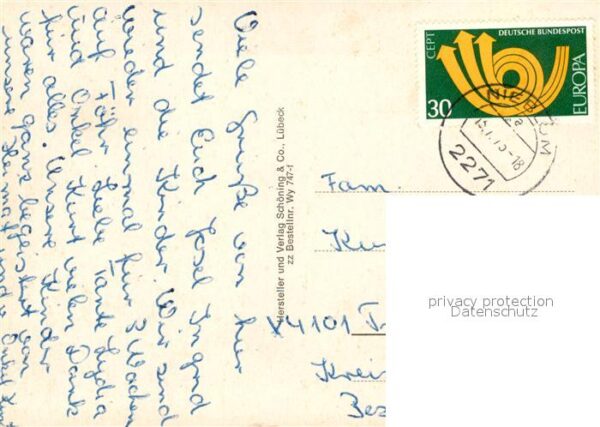 Viele Grüße von hier
sendet Euch Josel Ingrid
und die Kinder. Wir sind
wieder einmal für 3 Wochen
auf Föhr. Liebe Tante Lydia
und Onkel Kurt vielen Dank
für alles. Unsere Kinder
waren ganz begeistert von
unsere Heimat und Onkel Kurt
Hersteller und Verlag Schöning & Co., Lübeck
zz Bestellnr. Wy 747-f
CEPT
DEUTSCHE BUNDESPOST
30
EUROPA
2271
Fam.
X4101
Krei
Bez
privacy protection
Datenschutz